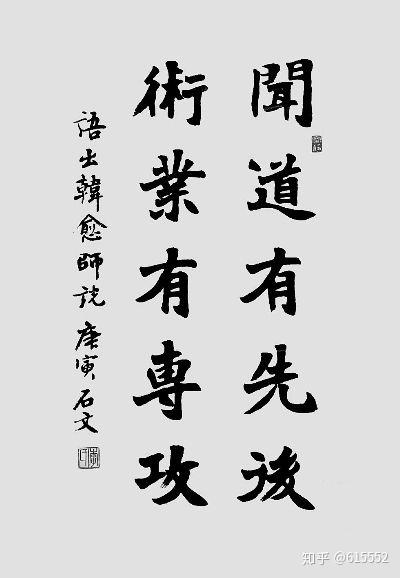 聞道有先後
術業有專攻
語出韓愈師說 庚寅 石文
知乎 @615552